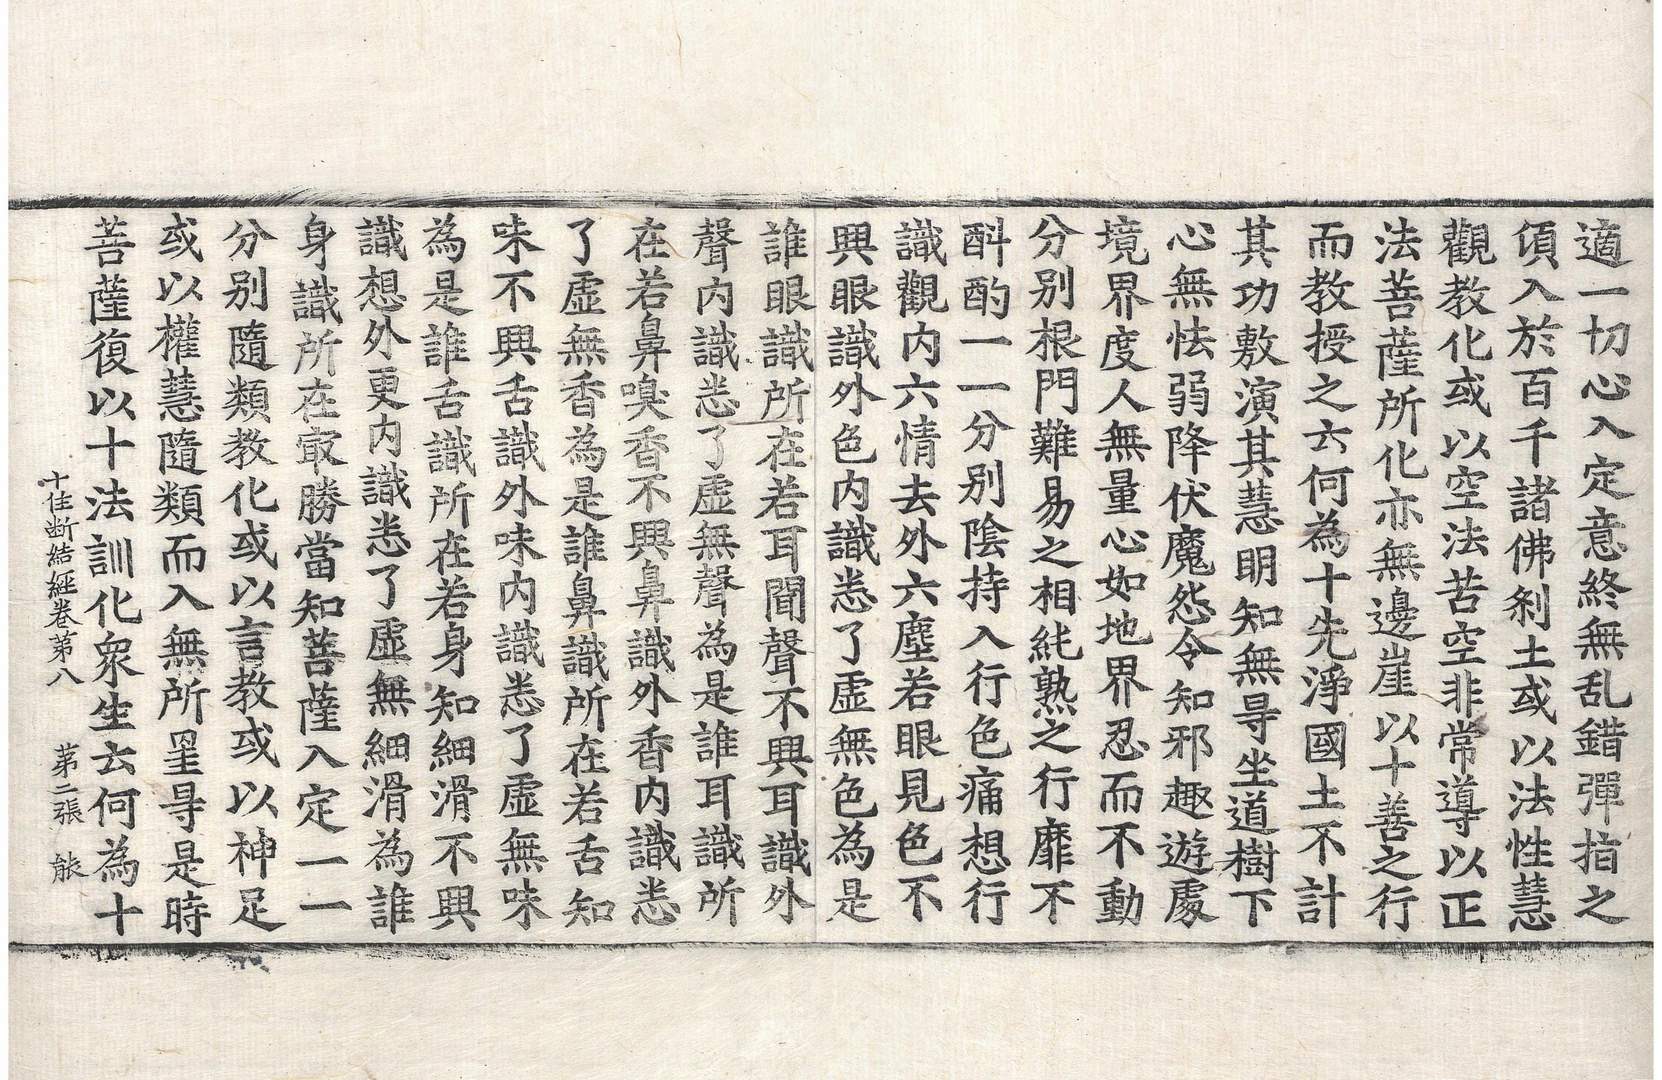 適一切心入定意終無乱錯彈指之
頃入於百千諸佛剎土或以法性慧
觀教化或以空法苦空非常導以正
法菩薩所化亦無邊崖以十善之行
而教授之云何為十先淨國土不計
其功敷演其慧明知無㝵坐道樹下
心無怯弱降伏魔怨令知邪趣遊處
境界度人無量心如地界忍而不動
分別根門難易之相純熟之行靡不
斟酌一一分別陰持入行色痛想行
識觀內六情去外六塵若眼見色不
興眼識外色內識悉了虛無色為是
誰眼識所在若耳聞聲不興耳識外
聲內識悉了虛無聲為是誰耳識所
在若鼻嗅香不興鼻識外香內識悉
了虛無香為是誰鼻識所在若舌知
味不興舌識外味內識悉了虛無味
為是誰舌識所在若身知細滑不興
識想外更內識悉了虛無細滑為誰
身識所在冣勝當知菩薩入定一一
分別隨類教化或以言教或以神足
或以權慧隨類而入無所罣㝵是時
菩薩復以十法訓化眾生云何為十
十住断結經卷第八　第二張　䏻